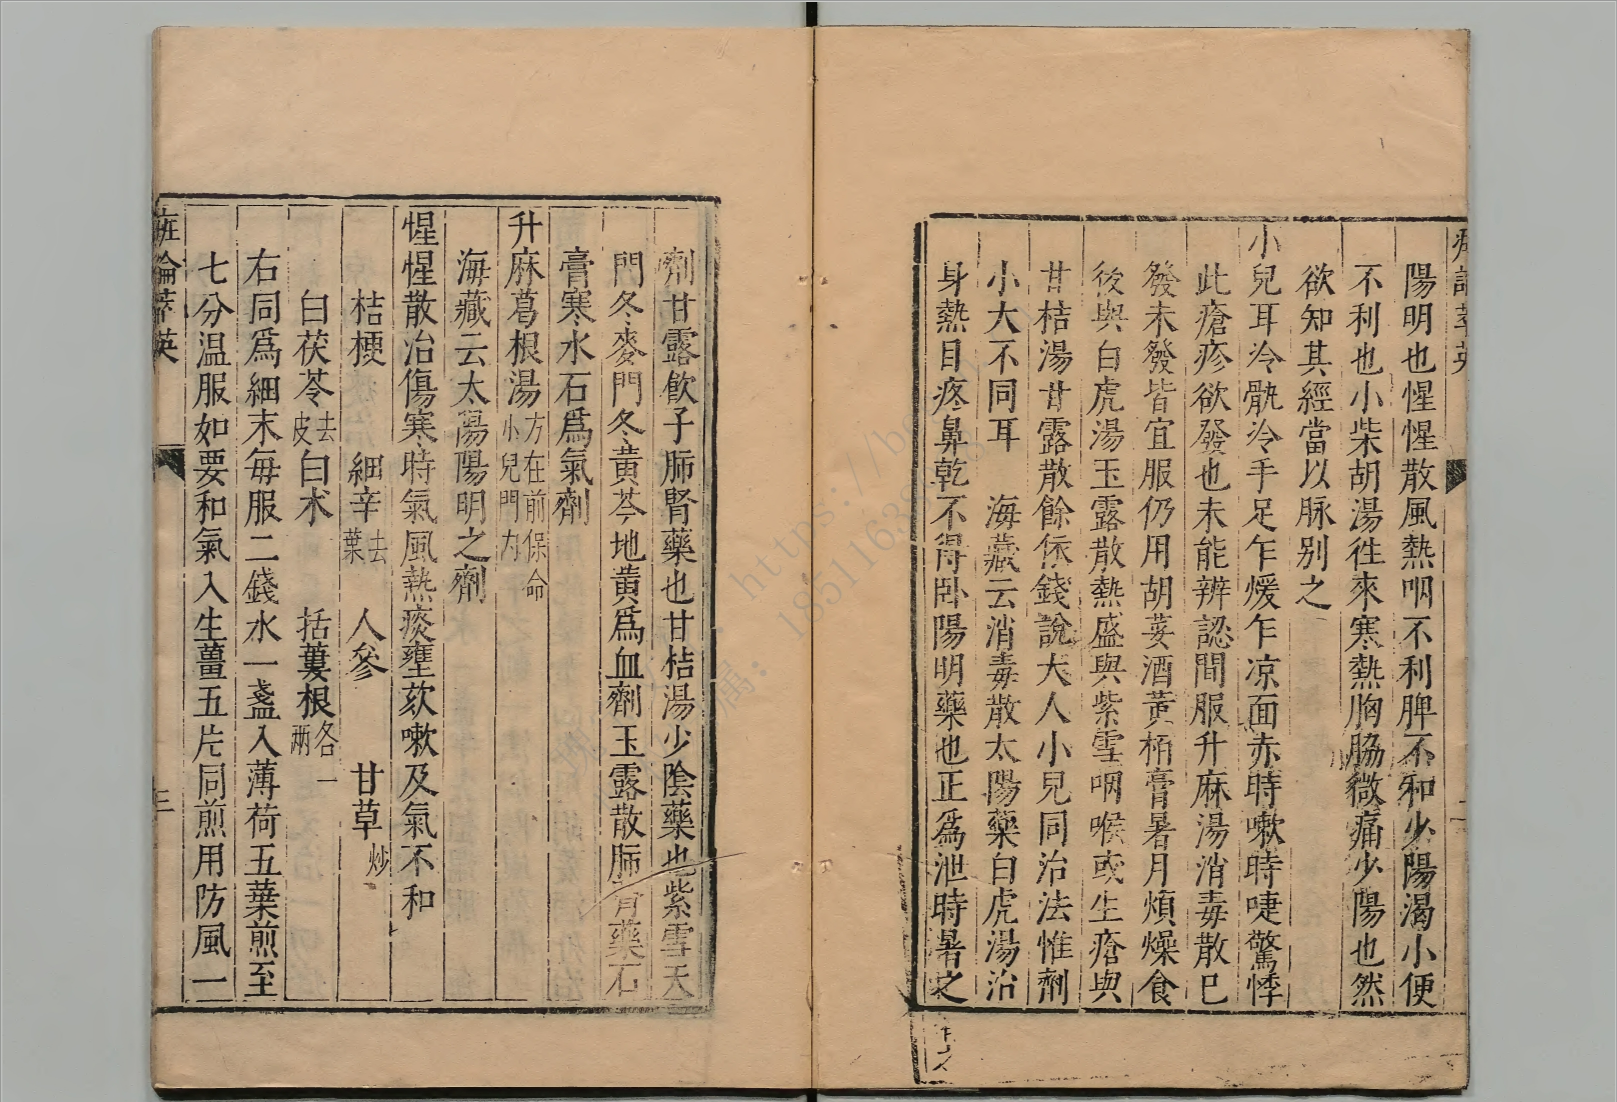 陽明也惺惺散風熱咽不利脾不和少陽渴小便
不利也小柴胡湯徃來寒熱胸脇微痛少陽也然
欲知其經當以脉别之
小兒耳冷骩冷手足乍煖乍凉面赤時嗽時嚏驚悸
此瘡疹欲發也未能辨認間服升麻湯消毒散巳
發未發皆宜服仍用胡荽酒黄栢膏暑月煩燥食
後與白虎湯玉露散熱盛與紫雪咽喉或生瘡與
甘桔湯甘露散餘依錢說大人小兒同治法惟劑
小大不同耳　海藏云消毒散太陽藥白虎湯治
身熱目疼鼻乾不得卧陽明藥也正爲泄時暑之
劑甘露飲子肺腎藥也甘桔湯少陰藥也紫雪天
門冬麥門冬黄芩地黄爲血劑玉露散肺腎藥石
膏寒水石爲氣劑
升麻葛根湯方在前保命小兒門内
海藏云太陽陽明之劑
惺惺散治傷寒時氣風熱痰壅欬嗽及氣不和
桔梗　細辛去葉　人參　甘草炒
白茯苓去皮　白术　括蔞根各一兩
右同爲細末每服二錢水一盞入薄荷五葉煎至
七分温服如要和氣入生薑五片同煎用防風一
斑論萃英
三